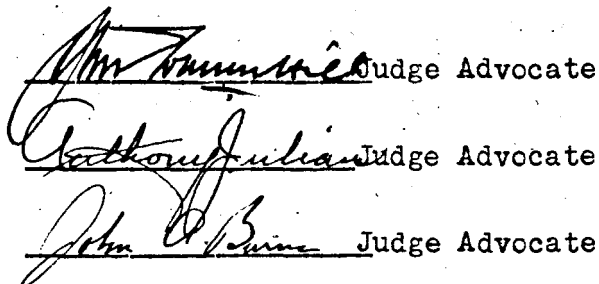 Wm Hill Judge Advocate
Anthony Julian Judge Advocate
John Burns Judge Advocate